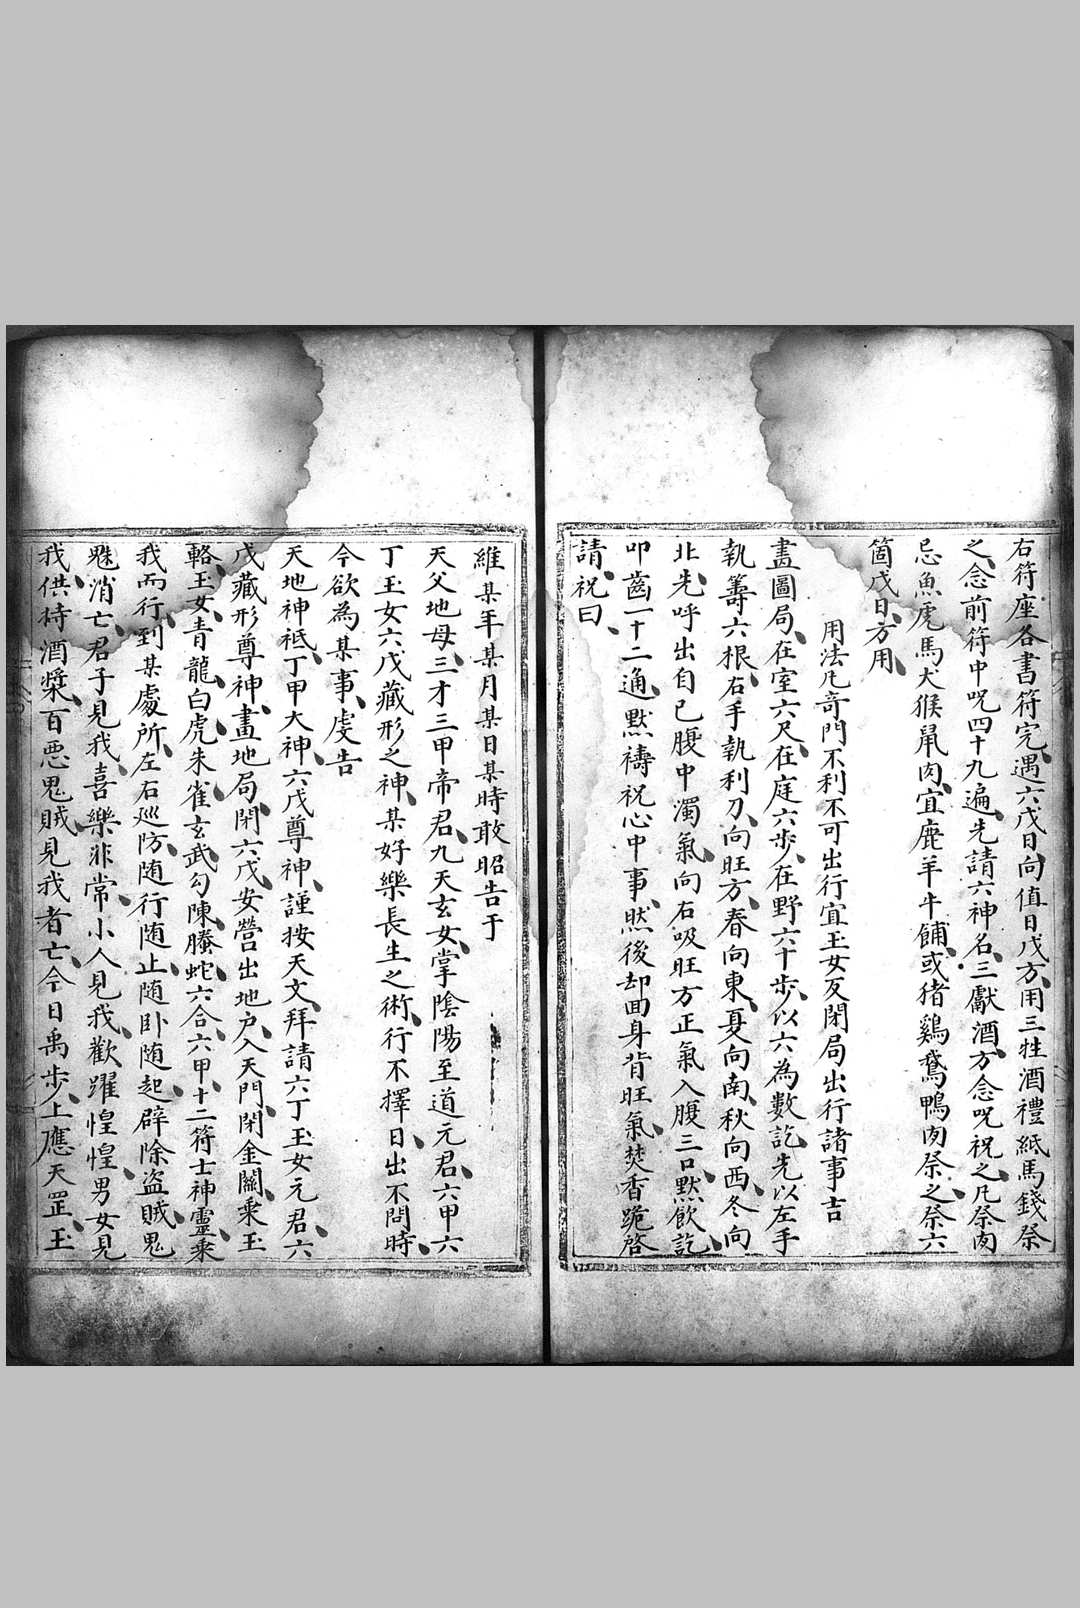 右符座各書符完遇六戊日向值日戊方用三牲酒禮紙馬錢祭
之念前符中呪四十九遍先請六神名三獻酒方念呪祝之凡祭肉
忌魚虎馬犬猴鼠肉宜鹿羊牛餔或猪鷄鵞鴨肉祭之祭六
箇戊日方用
用法凡奇門不利不可出行宜玉女反閉局出行諸事吉
畫圖局在室六尺在庭六步在野六十步以六為數訖先以左手
執籌六根右手執利刀向旺方春向東夏向南秋向西冬向
北先呼出自己腹中濁氣向右吸旺方正氣入腹三口默飲訖
叩齒一十二通默禱祝心中事然後却回身背旺氣焚香跪啓
請祝曰
維某年某月某日某時敢昭告于
天父地母三才三甲帝君九天玄女掌陰陽至道元君六甲六
丁玉女六戊藏形之神某好樂長生之術行不擇日出不問時
今欲為某事虔告
天地神祇丁甲大神六戊尊神謹按天文拜請六丁玉女元君六
戊藏形尊神畫地局閉六戊安營出地户入天門閉金關乘玉
輅玉女青龍白虎朱雀玄武勾陳螣蛇六合六甲十二符士神靈乘
我而行到某處所左右巡防随行随止随卧随起辟除盜賊鬼
魅消亡君子見我喜樂非常小人見我歡躍惶惶男女見
我供待酒漿百惡鬼賊見我者亡今日禹步上應天罡玉